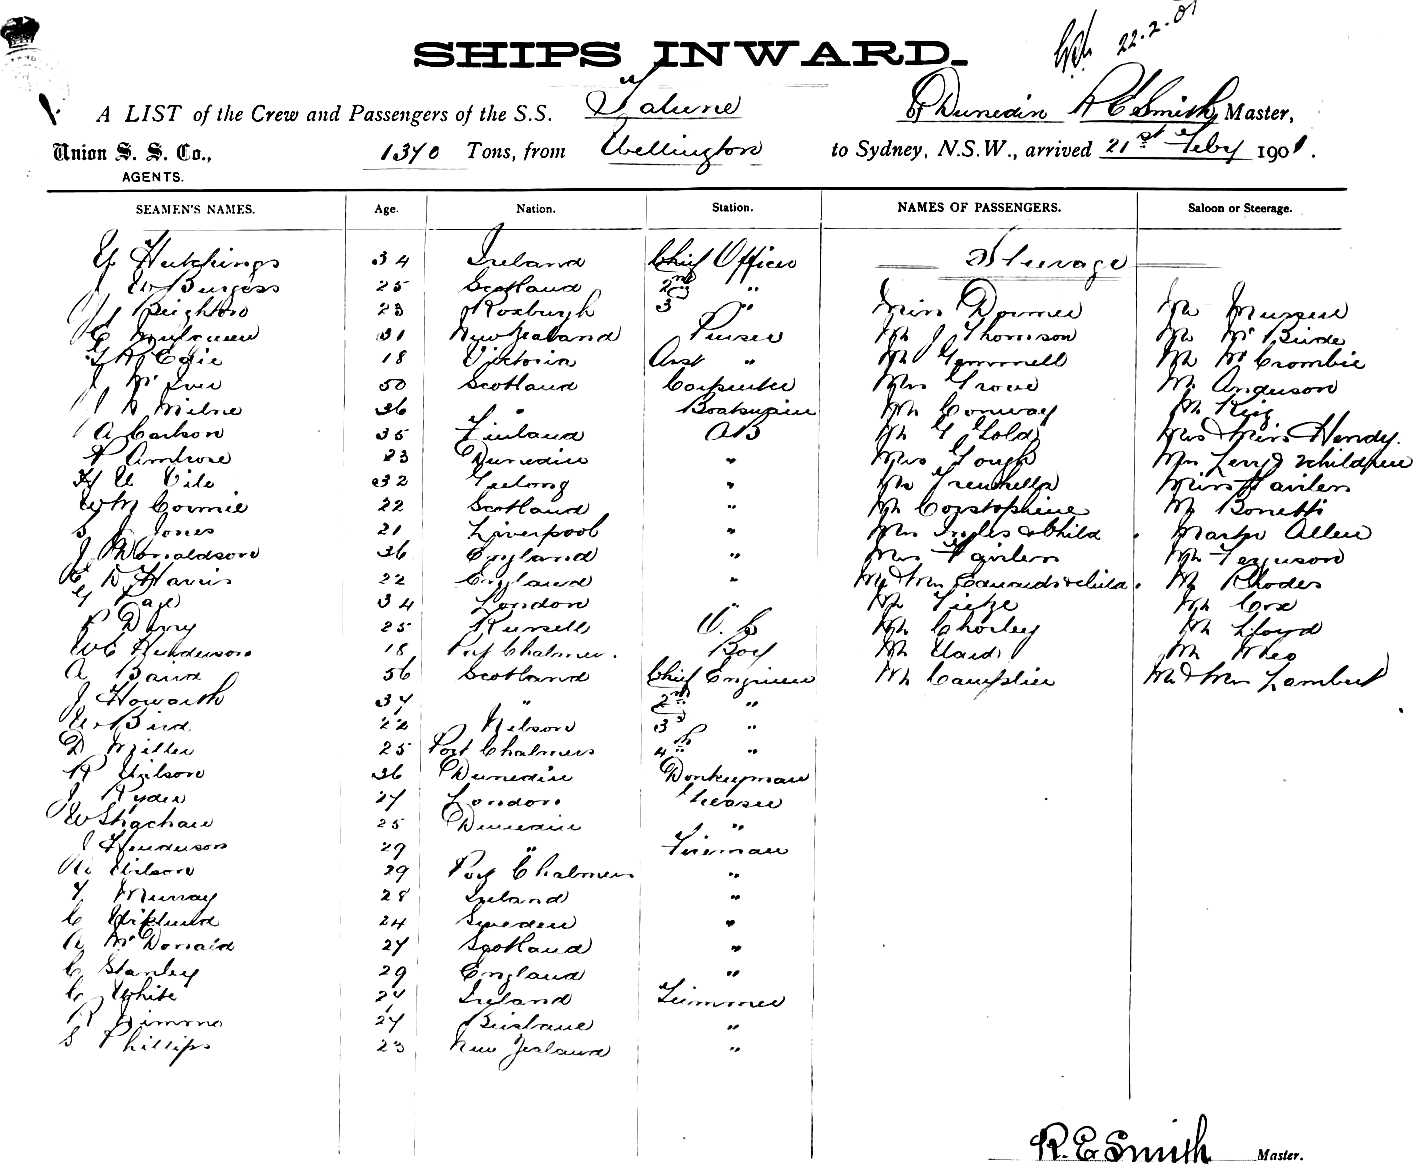 22.2.01
SHIPS INWARD.
A LIST of the Crew and Passengers of the S.S. Talune of Dunedin R E Smith Master,
Union S. S. Co., 1370 Tons, from Wellington to Sydney, N.S.W., arrived 21st Feby 1901.
AGENTS.
SEAMEN'S NAMES. Age. Nation. Station. NAMES OF PASSENGERS. Saloon or Steerage.
Hutchings 34 Ireland Chief Officer Steerage
J W Burgess 25 Scotland 2nd "
J Beighton 23 Roxburgh 3rd " Miss Dormer Mr
C 31 New Zealand Purser Mr J Thomson Mr Mc Birde
G R Edie 18 Victoria Asst " Mr Gemmell Mr Mc Crombie
J McIver 50 Scotland Carpenter Mrs Grove Mr Anderson
J S Milne 36 " Boatswain Mr Conway Mr King
A Carlson 35 Finland AB Mr G Gold Mrs & Miss Hendy.
P Ambrose 23 Dunedin " Mrs Gough Mrs & 2 children
H Vile 32 Geelong " Mr Miss
W McCormie 22 Scotland " Mr Corstophine Mr Bonetti
S J Jones 21 Liverpool " Mrs Ingles & Child Master Allen
J Donaldson 36 England " Mrs Mr Ferguson
C D Harris 22 England " Mr & Mrs Edwards & child. Mr Rhodes
34 London " Mr Tietze Mr Cox
P Derry 25 Russell O.S Mr Chorley Mr Lloyd
W C Henderson 18 Port Chalmers. Boy Mr Mr
A Baird 56 Scotland Chief Engineer Mr Mr & Mrs Lambert
J Howarth 37 " 2nd "
W Bird 22 Nelson 3rd "
D Miller 25 Port Chalmers 4th "
R Wilson 36 Dunedin Donkeyman
J Ryder 27 London Greaser
W 25 Dunedin "
J Henderson 29 " Fireman
Wilson 29 Port Chalmers "
T Murray 28 Ireland "
C Wiklund 24 Sweden "
A McDonald 27 Scotland "
C Stanley 29 England "
C White 24 Ireland Trimmer
R Nimmo 27 Brisbane "
S Phillips 23 New Zealand "
R. E Smith Master.